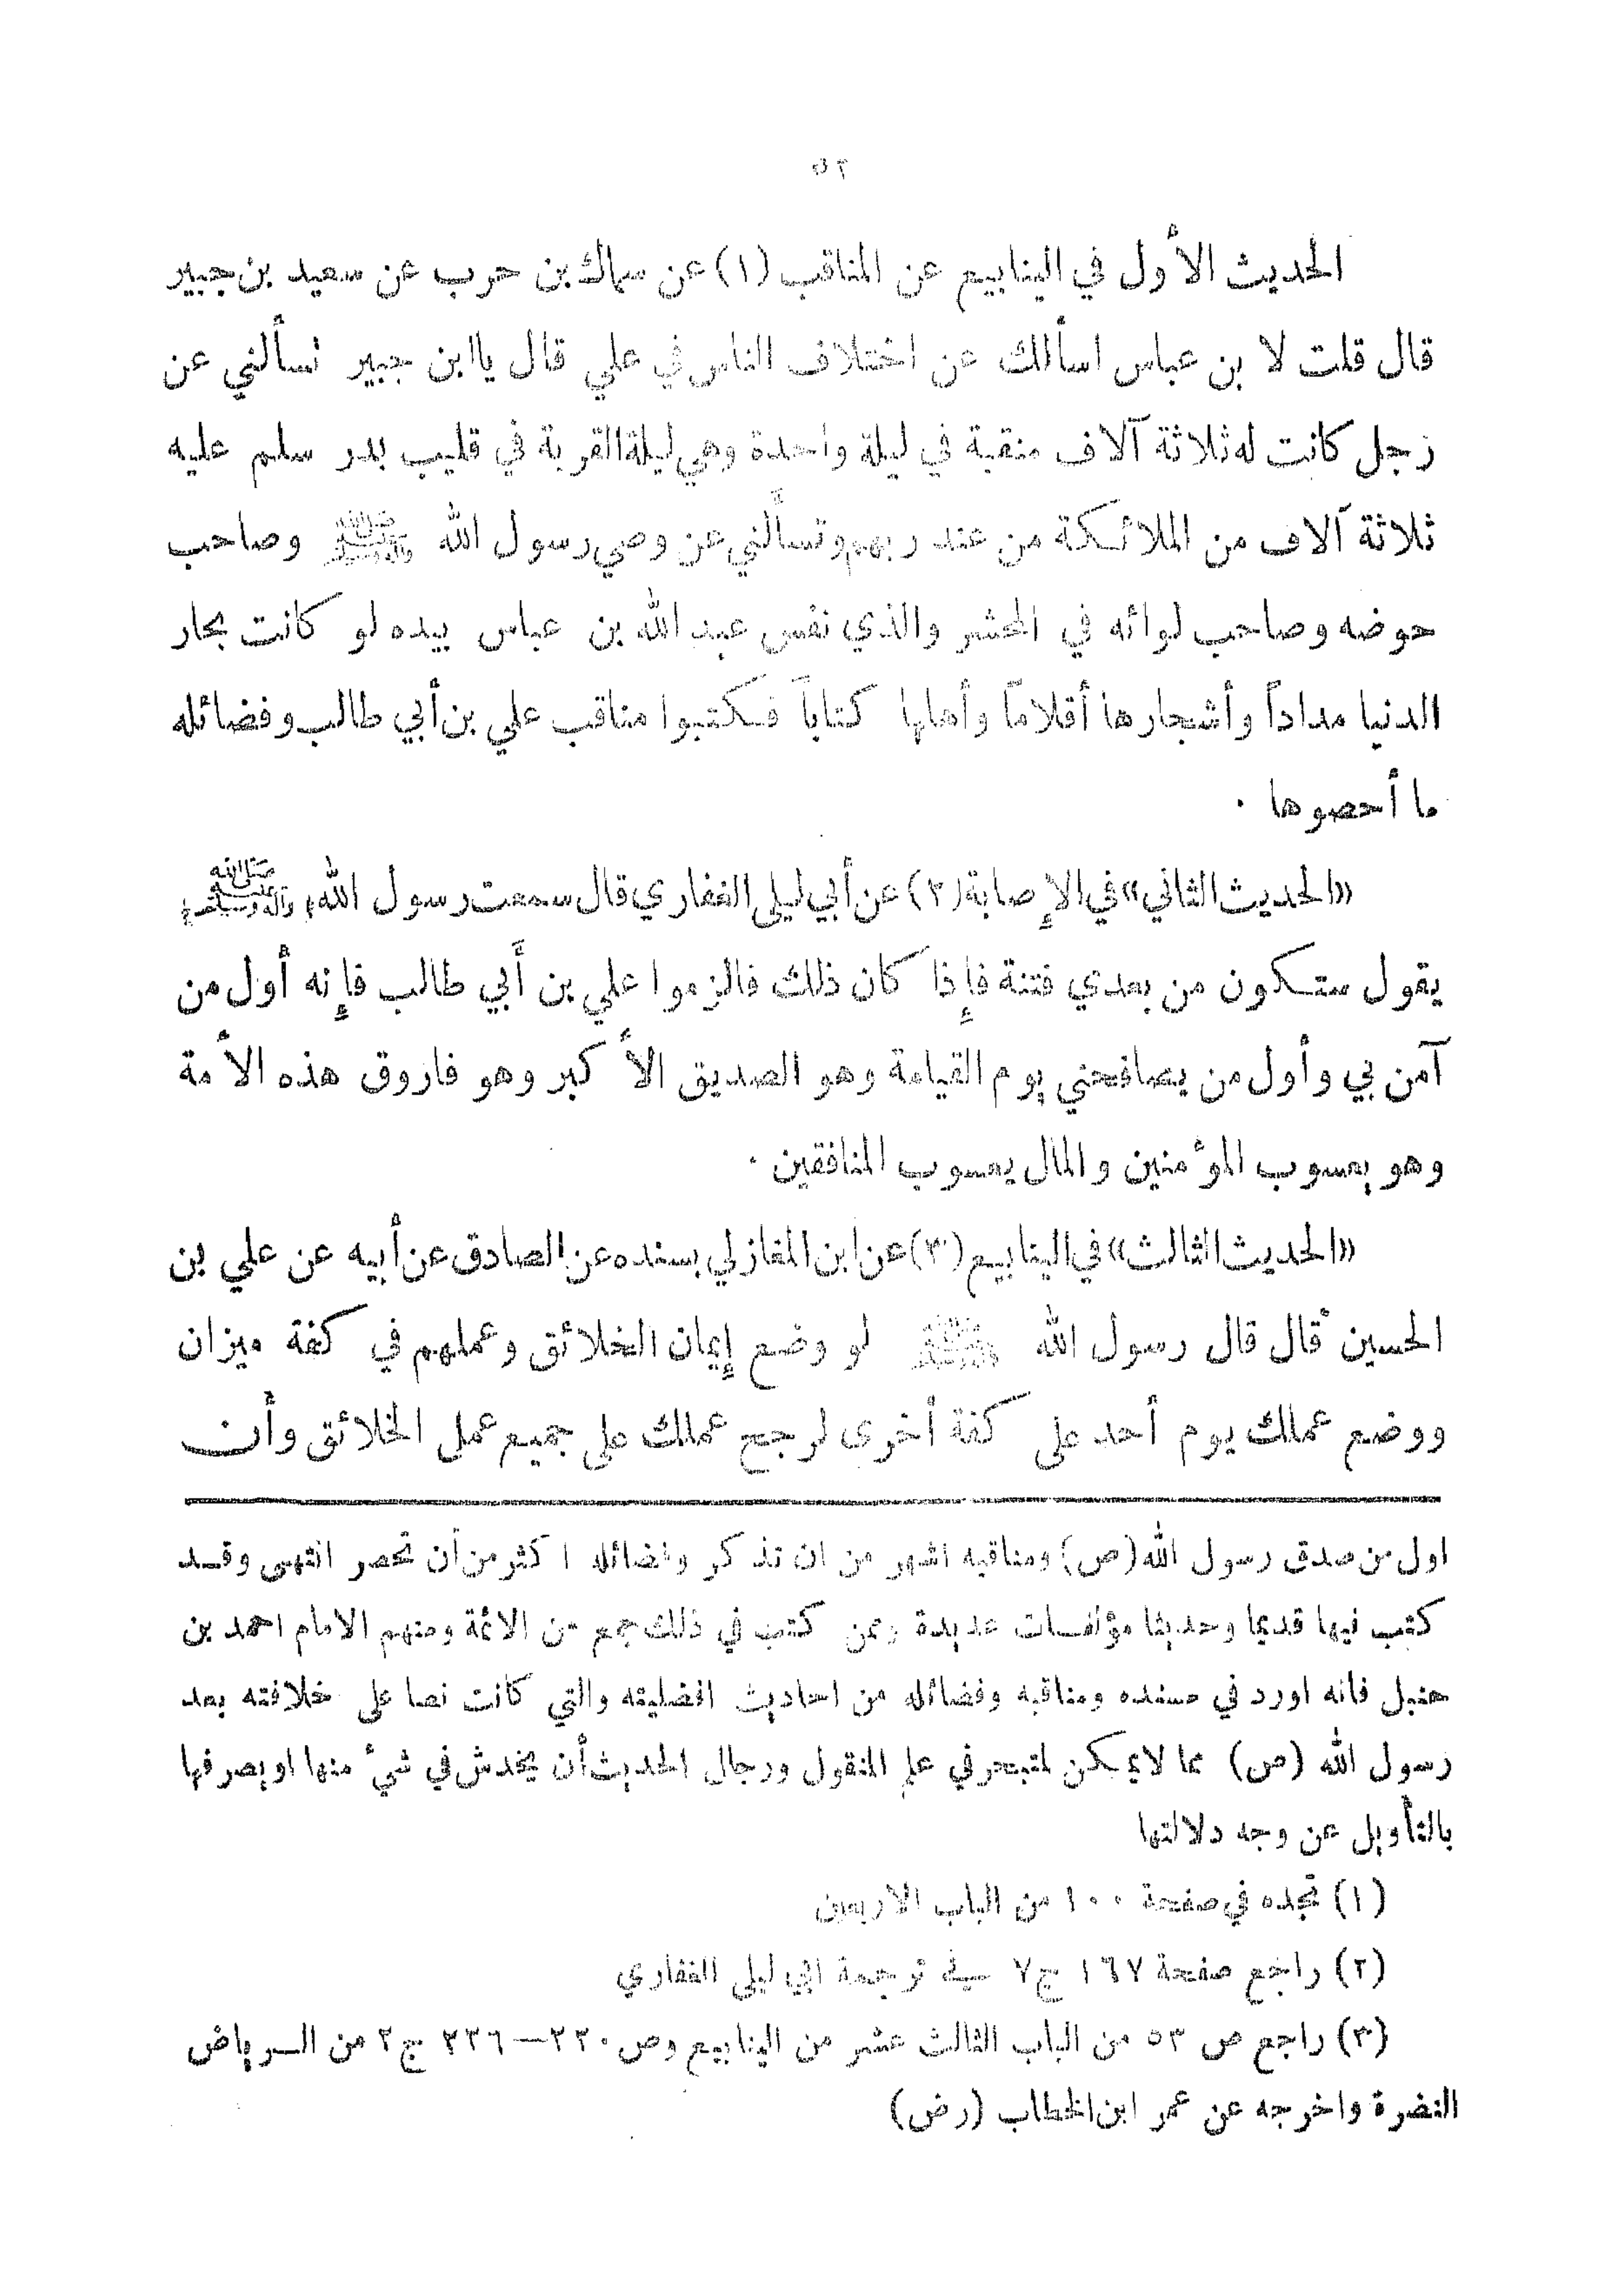 ٥٢
الحديث الأول في الينابيع عن المناقب (١) عن سماك بن حرب عن سعيد بن جبير
قال قلت لا بن عباس اسألك عن اختلاف الناس في علي قال يا ابن جبير تسألني عن
رجل كانت له ثلاثة آلاف منقبة في ليلة واحدة وهي ليلة القربة في قليب بدر سلم عليه
ثلاثة آلاف من الملائكة من عند ربهم وتسألني عن وصي رسول الله ﷺ وصاحب
حوضه وصاحب لوائه في المحشر والذي نفس عبد الله بن عباس بيده لو كانت بحار
الدنيا مداداً وأشجارها أقلاماً وأهلها كتاباً فكتبوا مناقب علي بن أبي طالب وفضائله
ما أحصوها .
«الحديث الثاني» في الإصابة (٢) عن أبي ليلى الغفاري قال سمعت رسول الله صلى الله عليه وآله وسلم
يقول ستكون من بعدي فتنة فإذا كان ذلك فالزموا علي بن أبي طالب فإنه أول من
آمن بي وأول من يصافحني يوم القيامة وهو الصديق الأكبر وهو فاروق هذه الأمة
وهو يعسوب المؤمنين والمال يعسوب المنافقين .
«الحديث الثالث» في الينابيع (٣) عن ابن المغازلي بسنده عن الصادق عن أبيه عن علي بن
الحسين قال قال رسول الله ﷺ لو وضع إيمان الخلائق وعملهم في كفة ميزان
ووضع عملك يوم أحد على كفة أخرى لرجح عملك على جميع عمل الخلائق وأن
اول من صدق رسول الله (ص) ومناقبه اشهر من ان تذكر وفضائله اكثر من أن تحصر انتهى وقد
كتب فيها قديما وحديثا مؤلفات عديدة وممن كتب في ذلك جمع من الائمة ومنهم الامام احمد بن
حنبل فانه اورد في مسنده ومناقبه وفضائله من احاديث افضليته والتي كانت نصا على خلافته بعد
رسول الله (ص) مما لا يمكن لمتبحر في علم المنقول ورجال الحديث أن يخدش في شيء منها او يصرفها
بالتأويل عن وجه دلالتها
(١) تجده في صفحة ١٠٠ من الباب الاربعين
(٢) راجع صفحة ١٦٧ ج ٧ في ترجمة ابي ليلى الغفاري
(٣) راجع ص ٥٣ من الباب الثالث عشر من الينابيع وص ٢٢٠ — ٢٢٦ ج ٢ من الرياض
النضرة واخرجه عن عمر ابن الخطاب (رض)